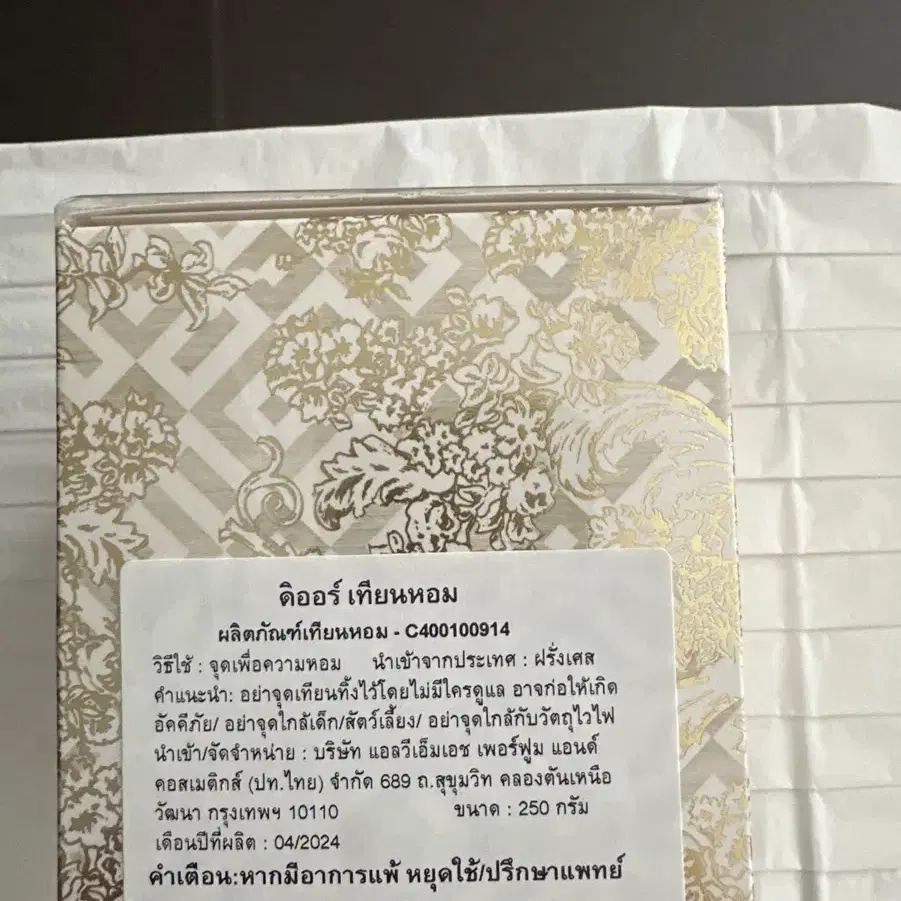 ดิออร์ เทียนหอม
ผลิตภัณฑ์เทียนหอม - C400100914
วิธีใช้ : จุดเพื่อความหอม นำเข้าจากประเทศ : ฝรั่งเศส
คำแนะนำ: อย่าจุดเทียนทิ้งไว้โดยไม่มีใครดูแล อาจก่อให้เกิด
อัคคีภัย/ อย่าจุดใกล้เด็ก/สัตว์เลี้ยง/ อย่าจุดใกล้กับวัตถุไวไฟ
นำเข้า/จัดจำหน่าย : บริษัท แอลวีเอ็มเอช เพอร์ฟูม แอนด์
คอสเมติกส์ (ปท.ไทย) จำกัด 689 ถ.สุขุมวิท คลองตันเหนือ
วัฒนา กรุงเทพฯ 10110 ขนาด : 250 กรัม
เดือนปีที่ผลิต : 04/2024
คำเตือน:หากมีอาการแพ้ หยุดใช้/ปรึกษาแพทย์